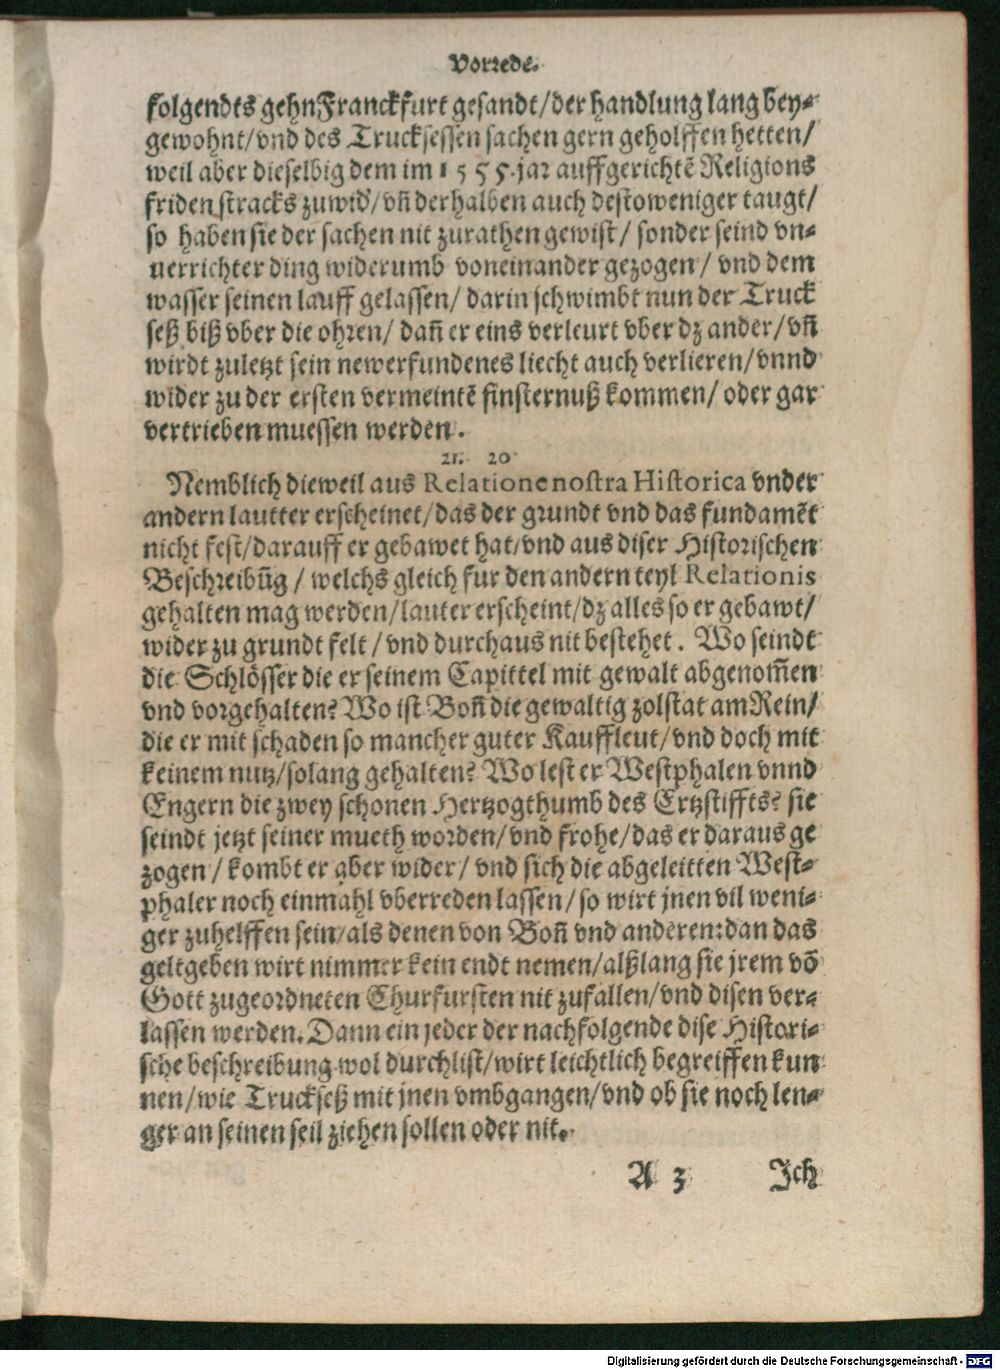 Vorrede.
folgendts gehn Franckfurt gesandt/der handlung lang bey⸗
gewohnt/vnd des Trucksessen sachen gern geholffen hetten/
weil aber dieselbig dem im 1555.jar auffgerichtē Religions
friden stracks zuwid'/vn̄ derhalben auch destoweniger taugt/
so haben sie der sachen nit zurathen gewist/ sonder seind vn⸗
uerrichter ding widerumb voneinander gezogen/ vnd dem
wasser seinen lauff gelassen/ darin schwimbt nun der Truck
seß biß vber die ohren/ dan̄ er eins verleurt vber dz ander/ vn̄
wirdt zuletzt sein newerfundenes liecht auch verlieren/vnnd
wider zu der ersten vermeintē finsternuß kommen/ oder gar
vertrieben muessen werden.
21. 20
Nemblich dieweil aus Relatione nostra Historica vnder
andern lautter erscheinet/das der grundt vnd das fundamēt
nicht fest/darauff er gebawet hat/vnd aus diser Historischen
Beschreibūg/ welchs gleich fur den andern teyl Relationis
gehalten mag werden/lauter erscheint/dz alles so er gebawt/
wider zu grundt felt/ vnd durchaus nit bestehet. Wo seindt
die Schlösser die er seinem Capittel mit gewalt abgenom̄en
vnd vorgehalten? Wo ist Bon̄ die gewaltig zolstat am Rein/
die er mit schaden so mancher guter Kauffleut/vnd doch mit
keinem nutz/solang gehalten? Wo lest er Westphalen vnnd
Engern die zwey schonen Hertzogthumb des Ertzstiffts? sie
seindt jetzt seiner mueth worden/vnd frohe/das er daraus ge
zogen/ kombt er aber wider/ vnd sich die abgeleitten West⸗
phaler noch einmahl vberreden lassen/so wirt jnen vil weni⸗
ger zuhelffen sein/als denen von Bon̄ vnd anderen:dan das
geltgeben wirt nimmer kein endt nemen/alßlang sie jrem vō
Gott zugeordneten Churfursten nit zufallen/vnd disen ver⸗
lassen werden. Dann ein jeder der nachfolgende dise Histori⸗
sche beschreibung wol durchlist/wirt leichtlich begreiffen kun
nen/wie Truckseß mit jnen vmbgangen/vnd ob sie noch len⸗
ger an seinen seil ziehen sollen oder nit.
A 3 Ich
Digitalisierung gefördert durch die Deutsche Forschungsgemeinschaft - DFG